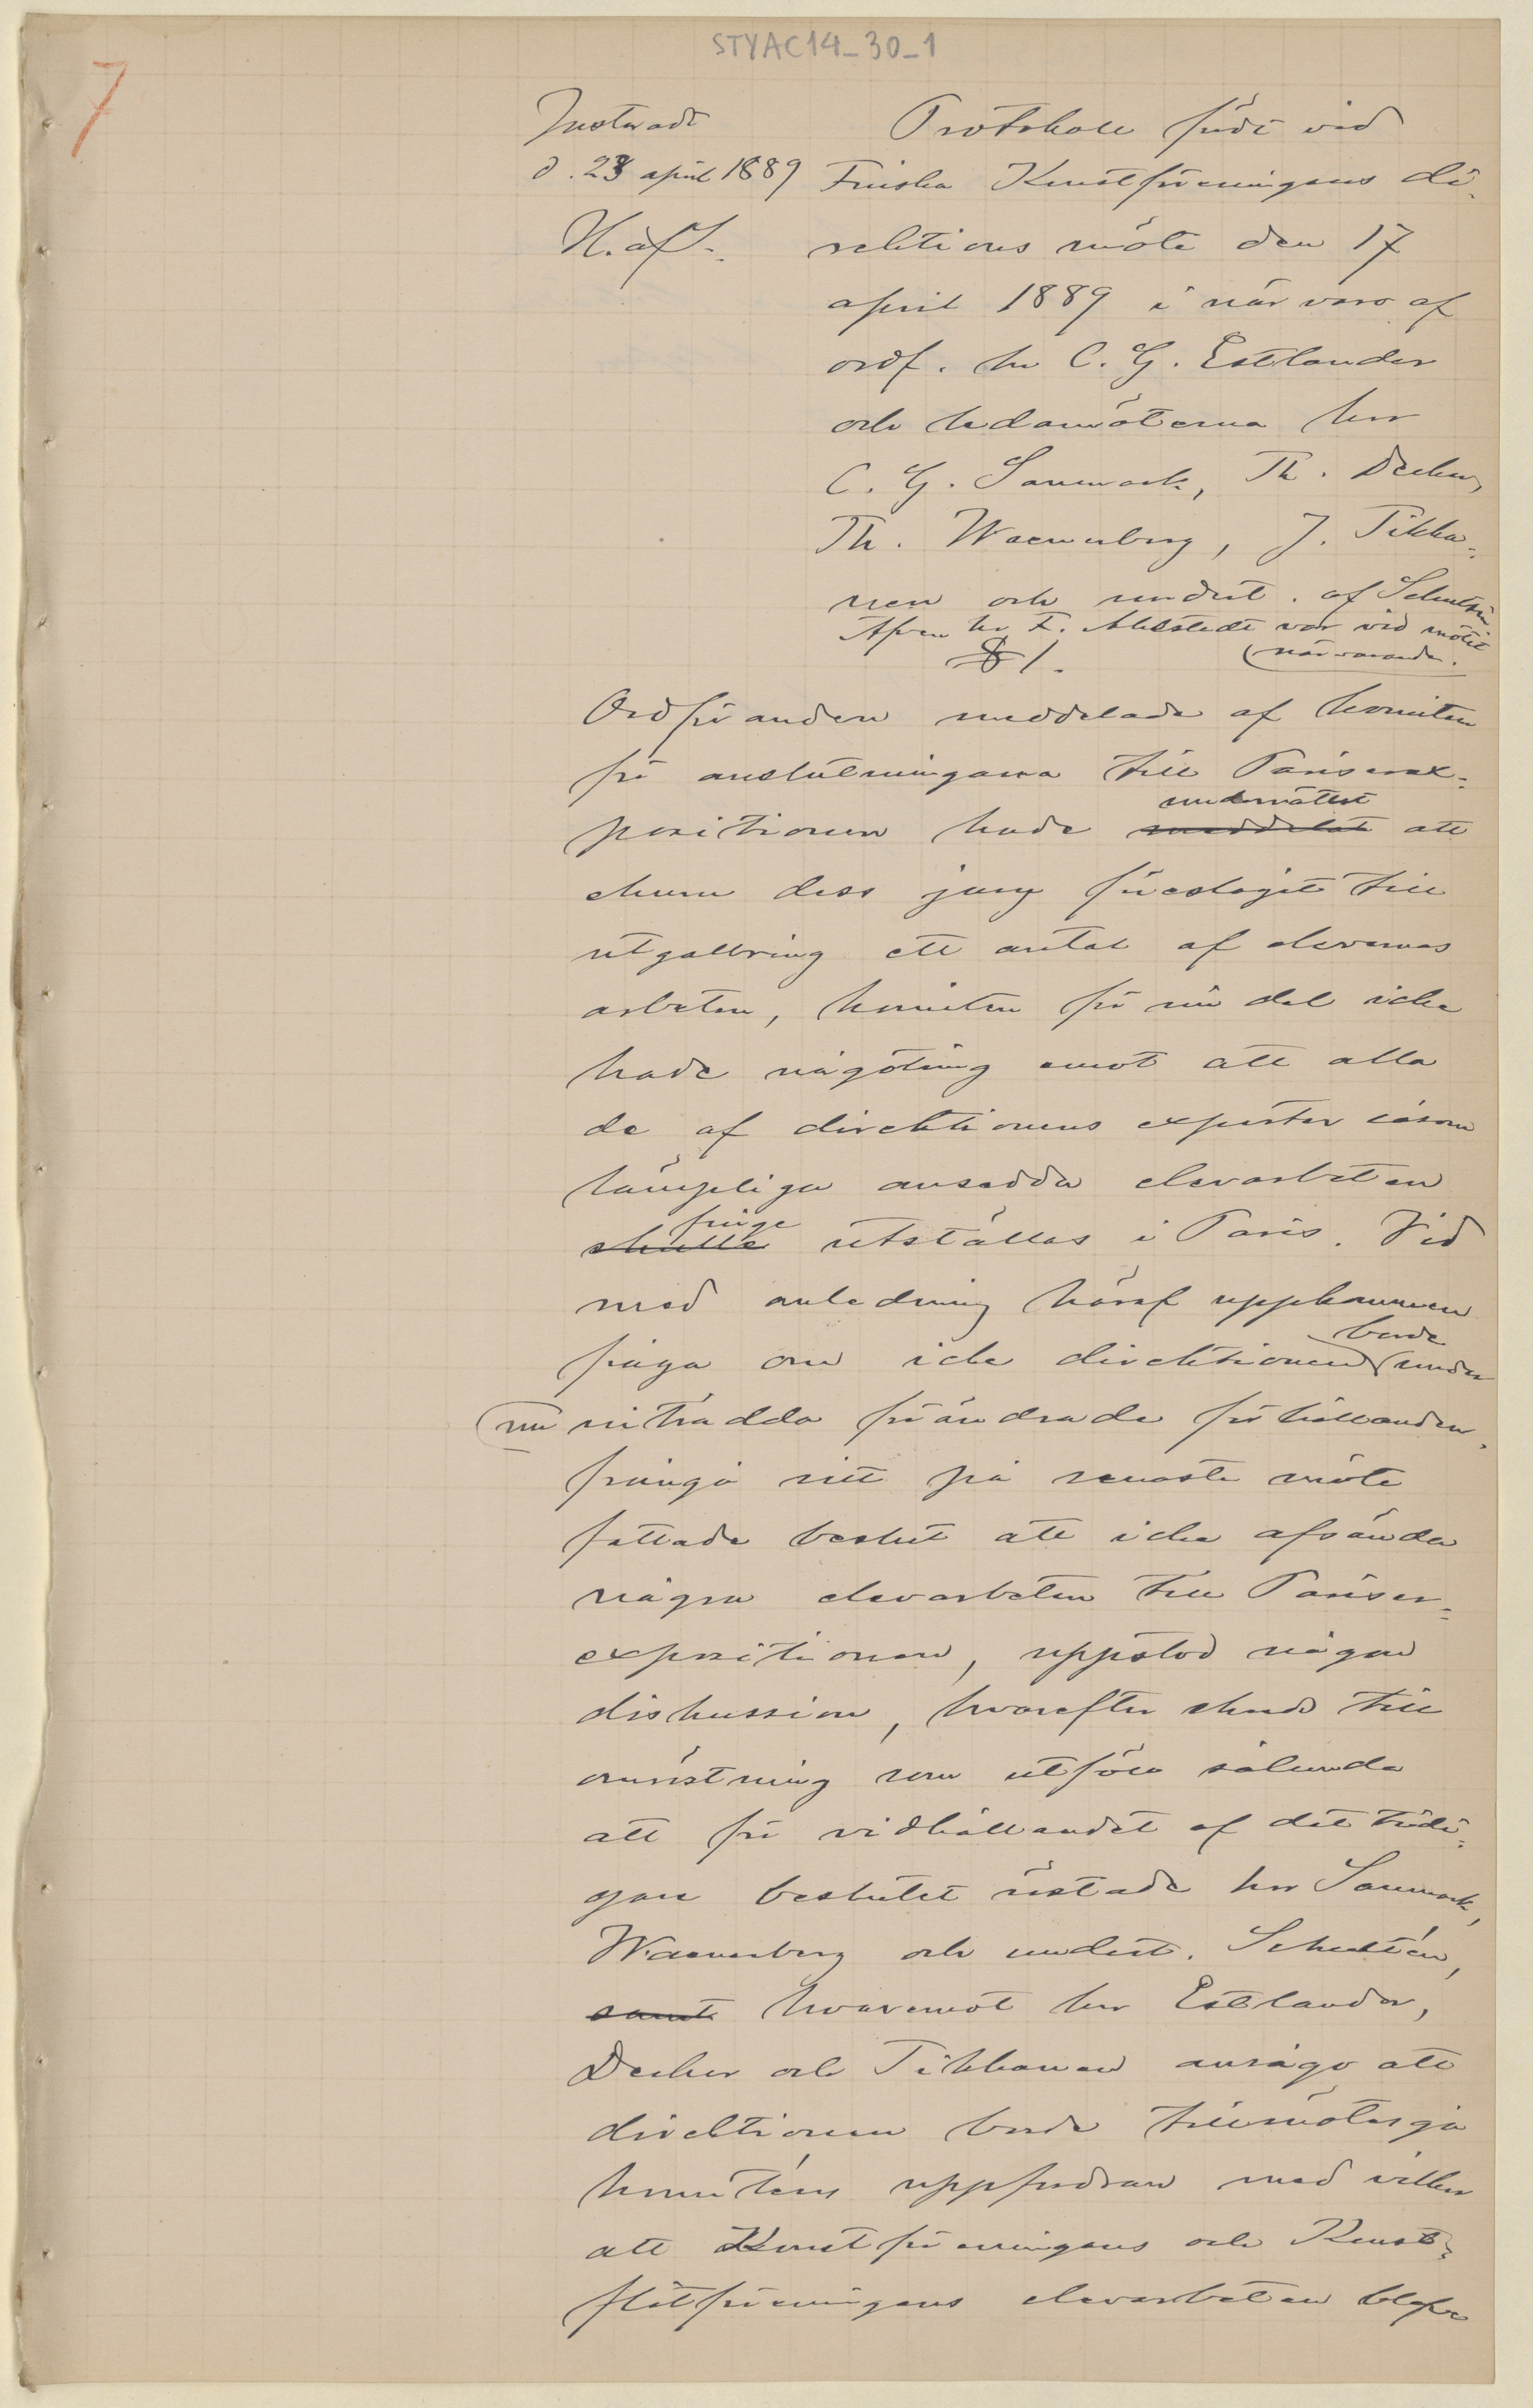 STYAC14_30_1
7
Justeradt
d. 23 april 1889
H. af S.
Protokoll fördt vid
Finska Konstföreningens di-
rektions möte den 17
april 1889 i närvaro af
ordf. hr C. G. Estlander
och ledamöterna hrr
C. G. Sanmark, Th. Decker,
Th. Waenerberg, J. Tikka-
nen och undert. af Schultén
Äfven hr F. Ahlstedt var vid mötet
närvarande.
§ 1.
Ordföranden meddelade af komitén
för anstalterna till Pariserex-
positionen hade meddelat underrättat att
ehuru dess jury föreslagit till
utgallring ett antal af elevernas
arbeten, komitén för sin del icke
hade någonting emot att alla
de af direktionens experter såsom
lämpliga ansedda elevarbeten
skulle finge utställas i Paris. Vid
med anledning häraf uppkommen
fråga om icke direktionen borde under
nu inträdda förändrade förhållanden
frångå sitt på senaste möte
fattade beslut att icke afsända
några elevarbeten till Pariser-
expositionen, uppstod någon
diskussion, hvarefter skreds till
omröstning som utföll sålunda
att för vidhållandet af det tidi-
gare beslutet röstade hrr Sanmark,
Waenerberg och undert. Schultén,
samt hvaremot hrr Estlander,
Decker och Tikkanen ansågo att
direktionen borde tillmötesgå
komiténs uppfordran med villkor
att Konstföreningens och Konst-
flitföreningens elevarbeten blefve